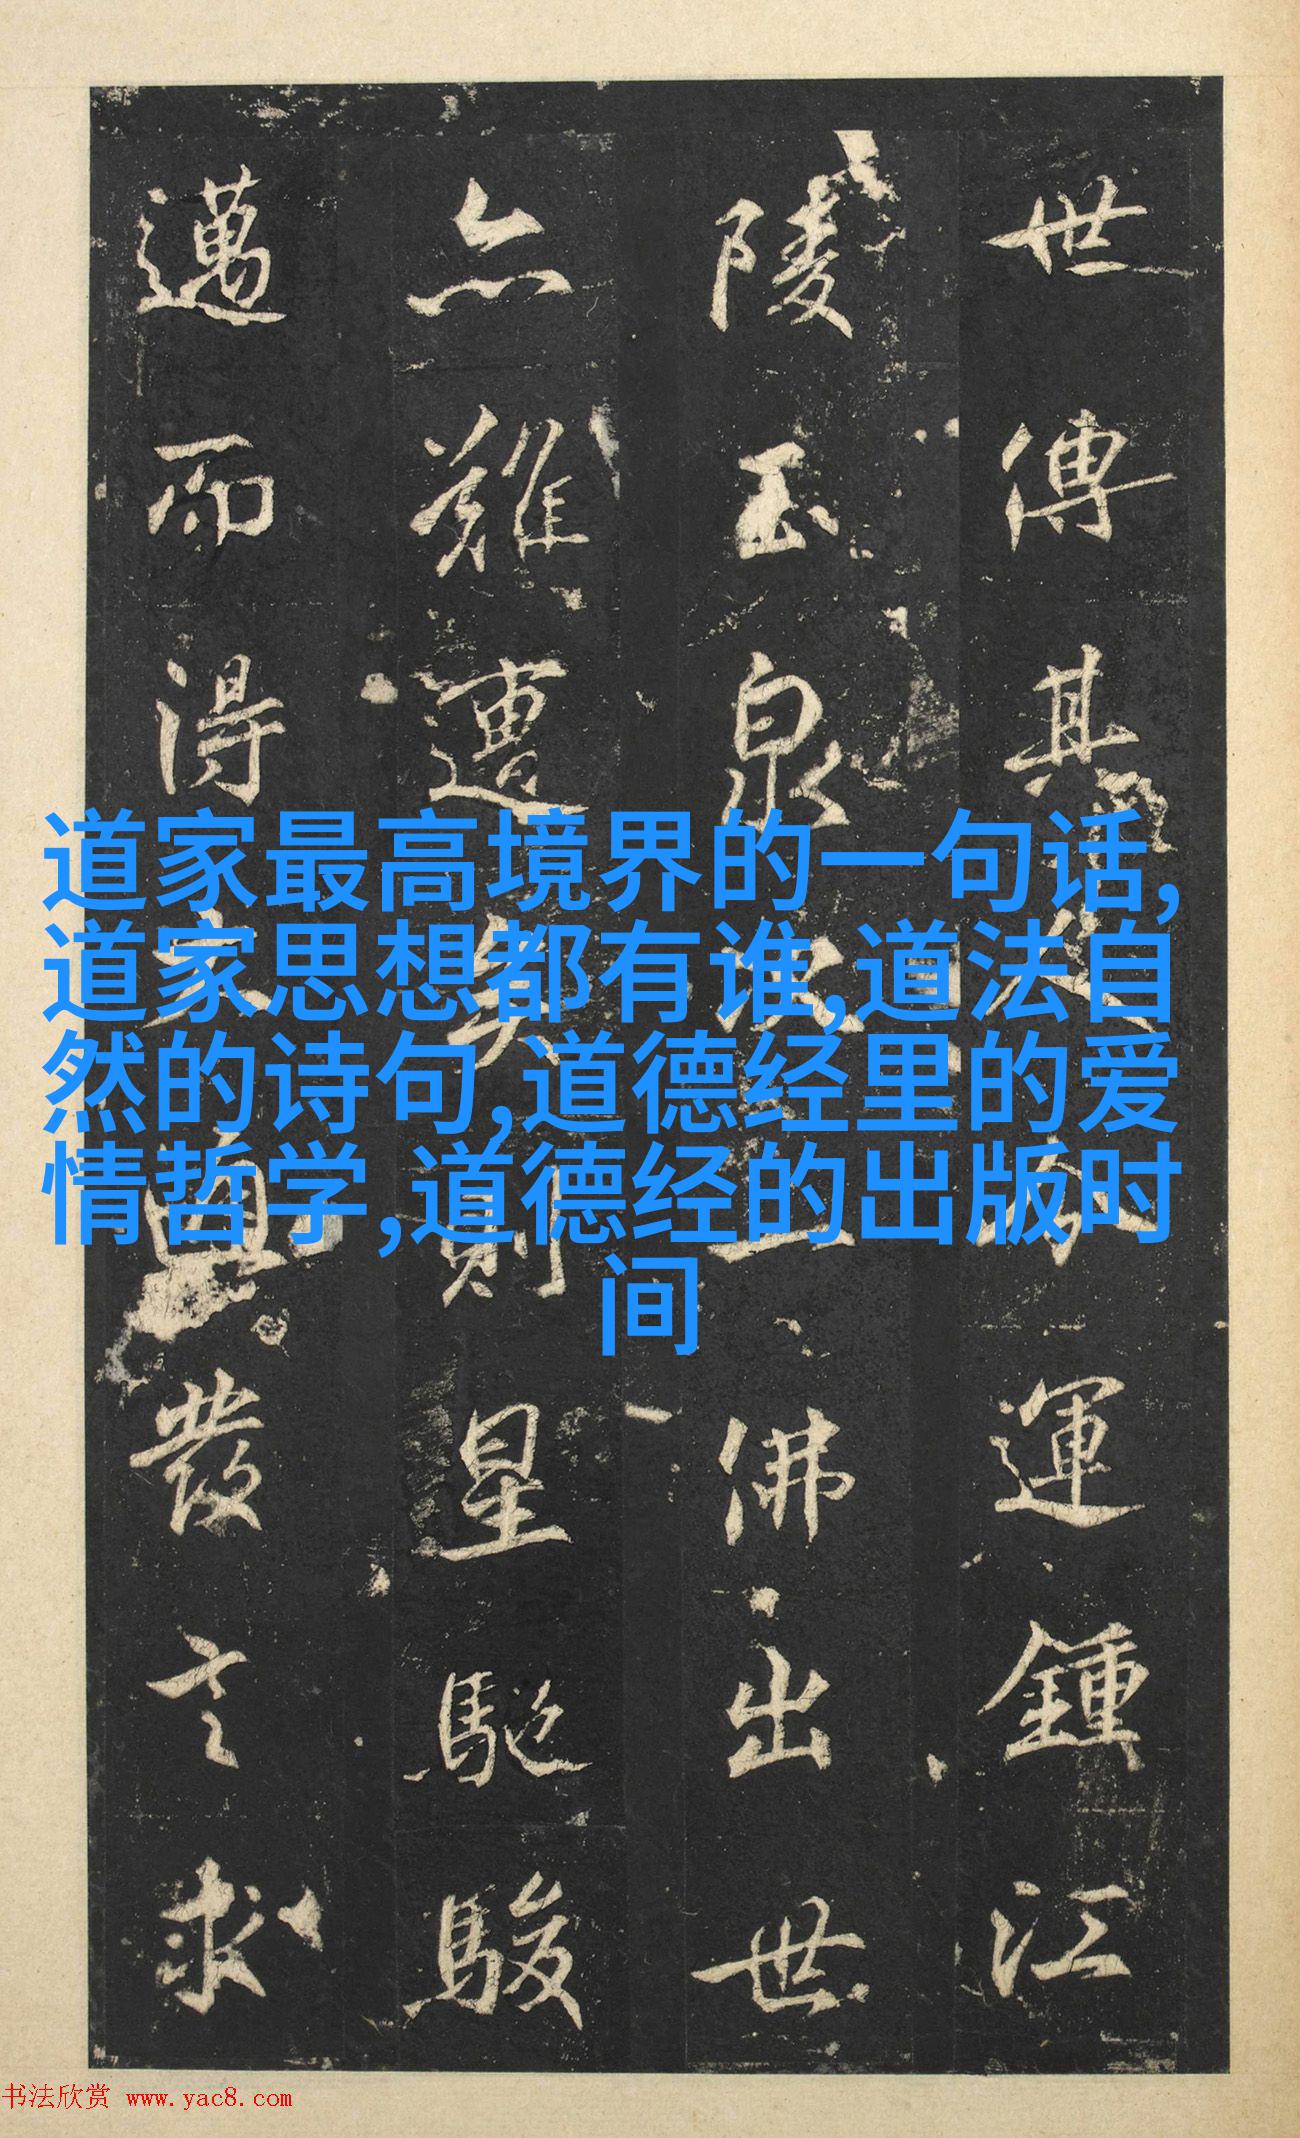 世傳其運鍾江
陵玉泉佛出世
亦難遭矣則星馳駿
邁而得大發求
道家最高境界的一句话,
道家思想都有谁,道法自
然的诗句,道德经里的爱
情哲学,道德经的出版时
间
书法欣赏 www.yac8.com